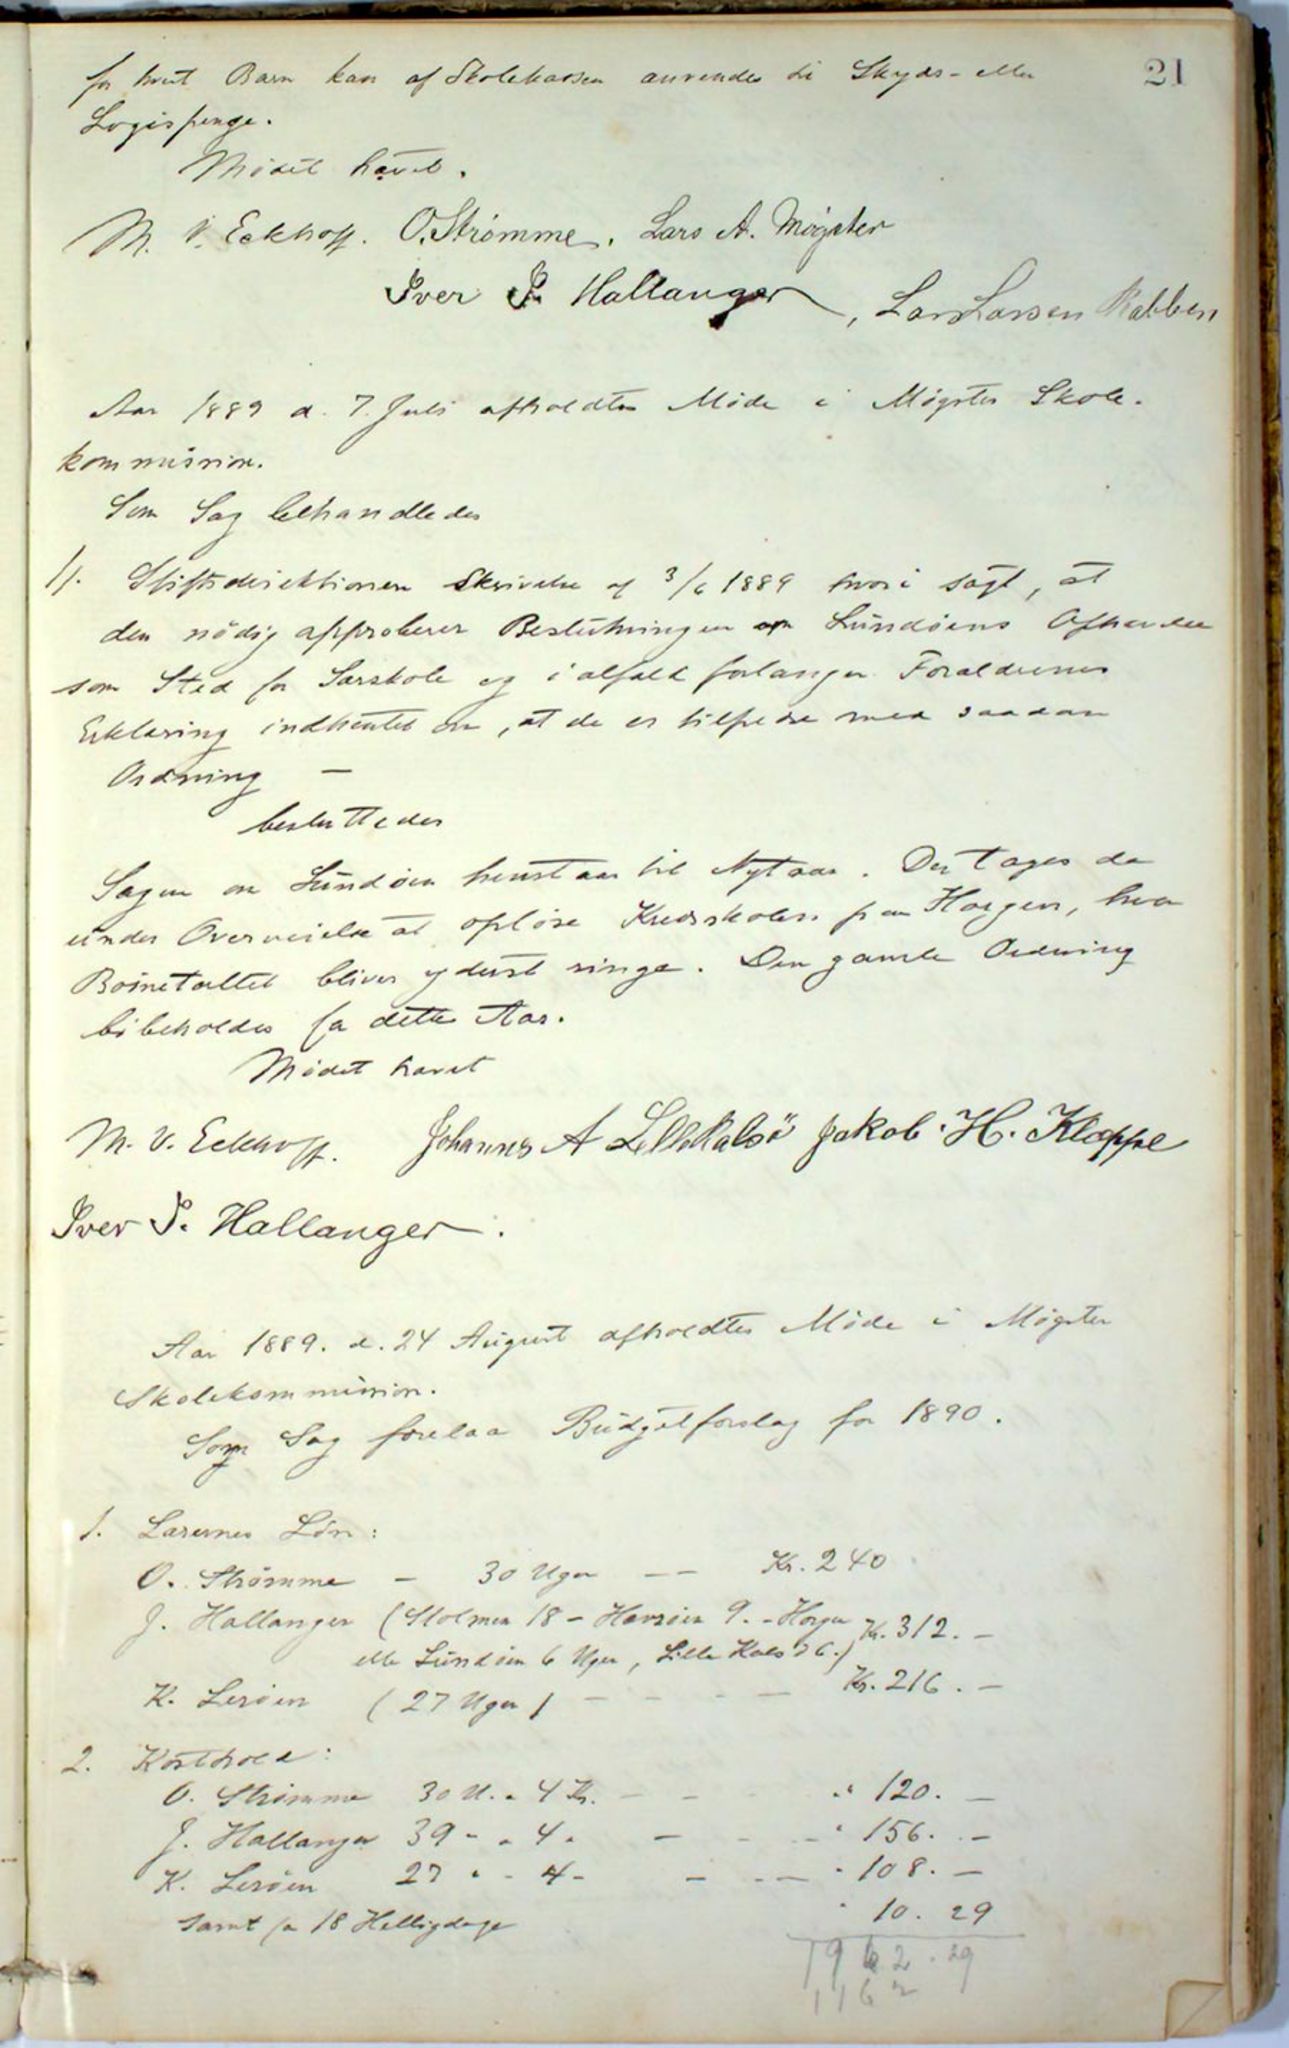 21
for hvert Barn kan af Skolekassen anvendes til Skyds- eller
Logispenge.
Mødet hævet.
M. V. Eckhoff. O. Strømme, Lars A. Møgster
Iver P. Hallanger, Lars Larsen Rabben
Aar 1889 d. 7. Juli afholdtes Møde i Møgster Skole-
kommission.
Som Sag behandledes
1). Stiftsdirektionens Skrivelse af 3/6 1889 hvori sagt, at
den nødig approberer Beslutningen om Lundøens
som Sted for Særskole og i alfald forlanger Forældrenes
Erklæring indhentet om, at de er tilfredse med saadan
Ordning —
besluttedes
Sagen om Lundøen henstaar til Nytaar. Der tages da
under Overveielse at opløse Kredsskolen paa Horgen, hvor
Børnetallet bliver yderst ringe. Den gamle Ordning
bibeholdes for dette Aar.
Mødet hævet
M. V. Eckhoff. Johannes A Lille Kalsø Jakob H. Kleppe
Iver P. Hallanger.
Aar 1889. d. 24 August afholdtes Møde i Møgster
Skolekommission.
Som Sag forelaa Budgetforslag for 1890.
1. Lærernes Løn:
O. Strømme — 30 Uger — — Kr. 240
J. Hallanger (Stolmen 18 - Havsøen 9. - Horgen Kr. 312. —
eller Lundøen 6 Uger, Lille Kalsø 6.)
K. Lerøen (27 Uger) — — — — Kr. 216. —
2. Kosthold:
O. Strømme 30 U. " 4 Kr. — — " 120. —
J. Hallanger 39 - " 4 " — — — " 156. —
K. Lerøen 27 " - 4 - — — — " 108. —
samt for 18 Helligdage " 10. 29
1962. 29
1162